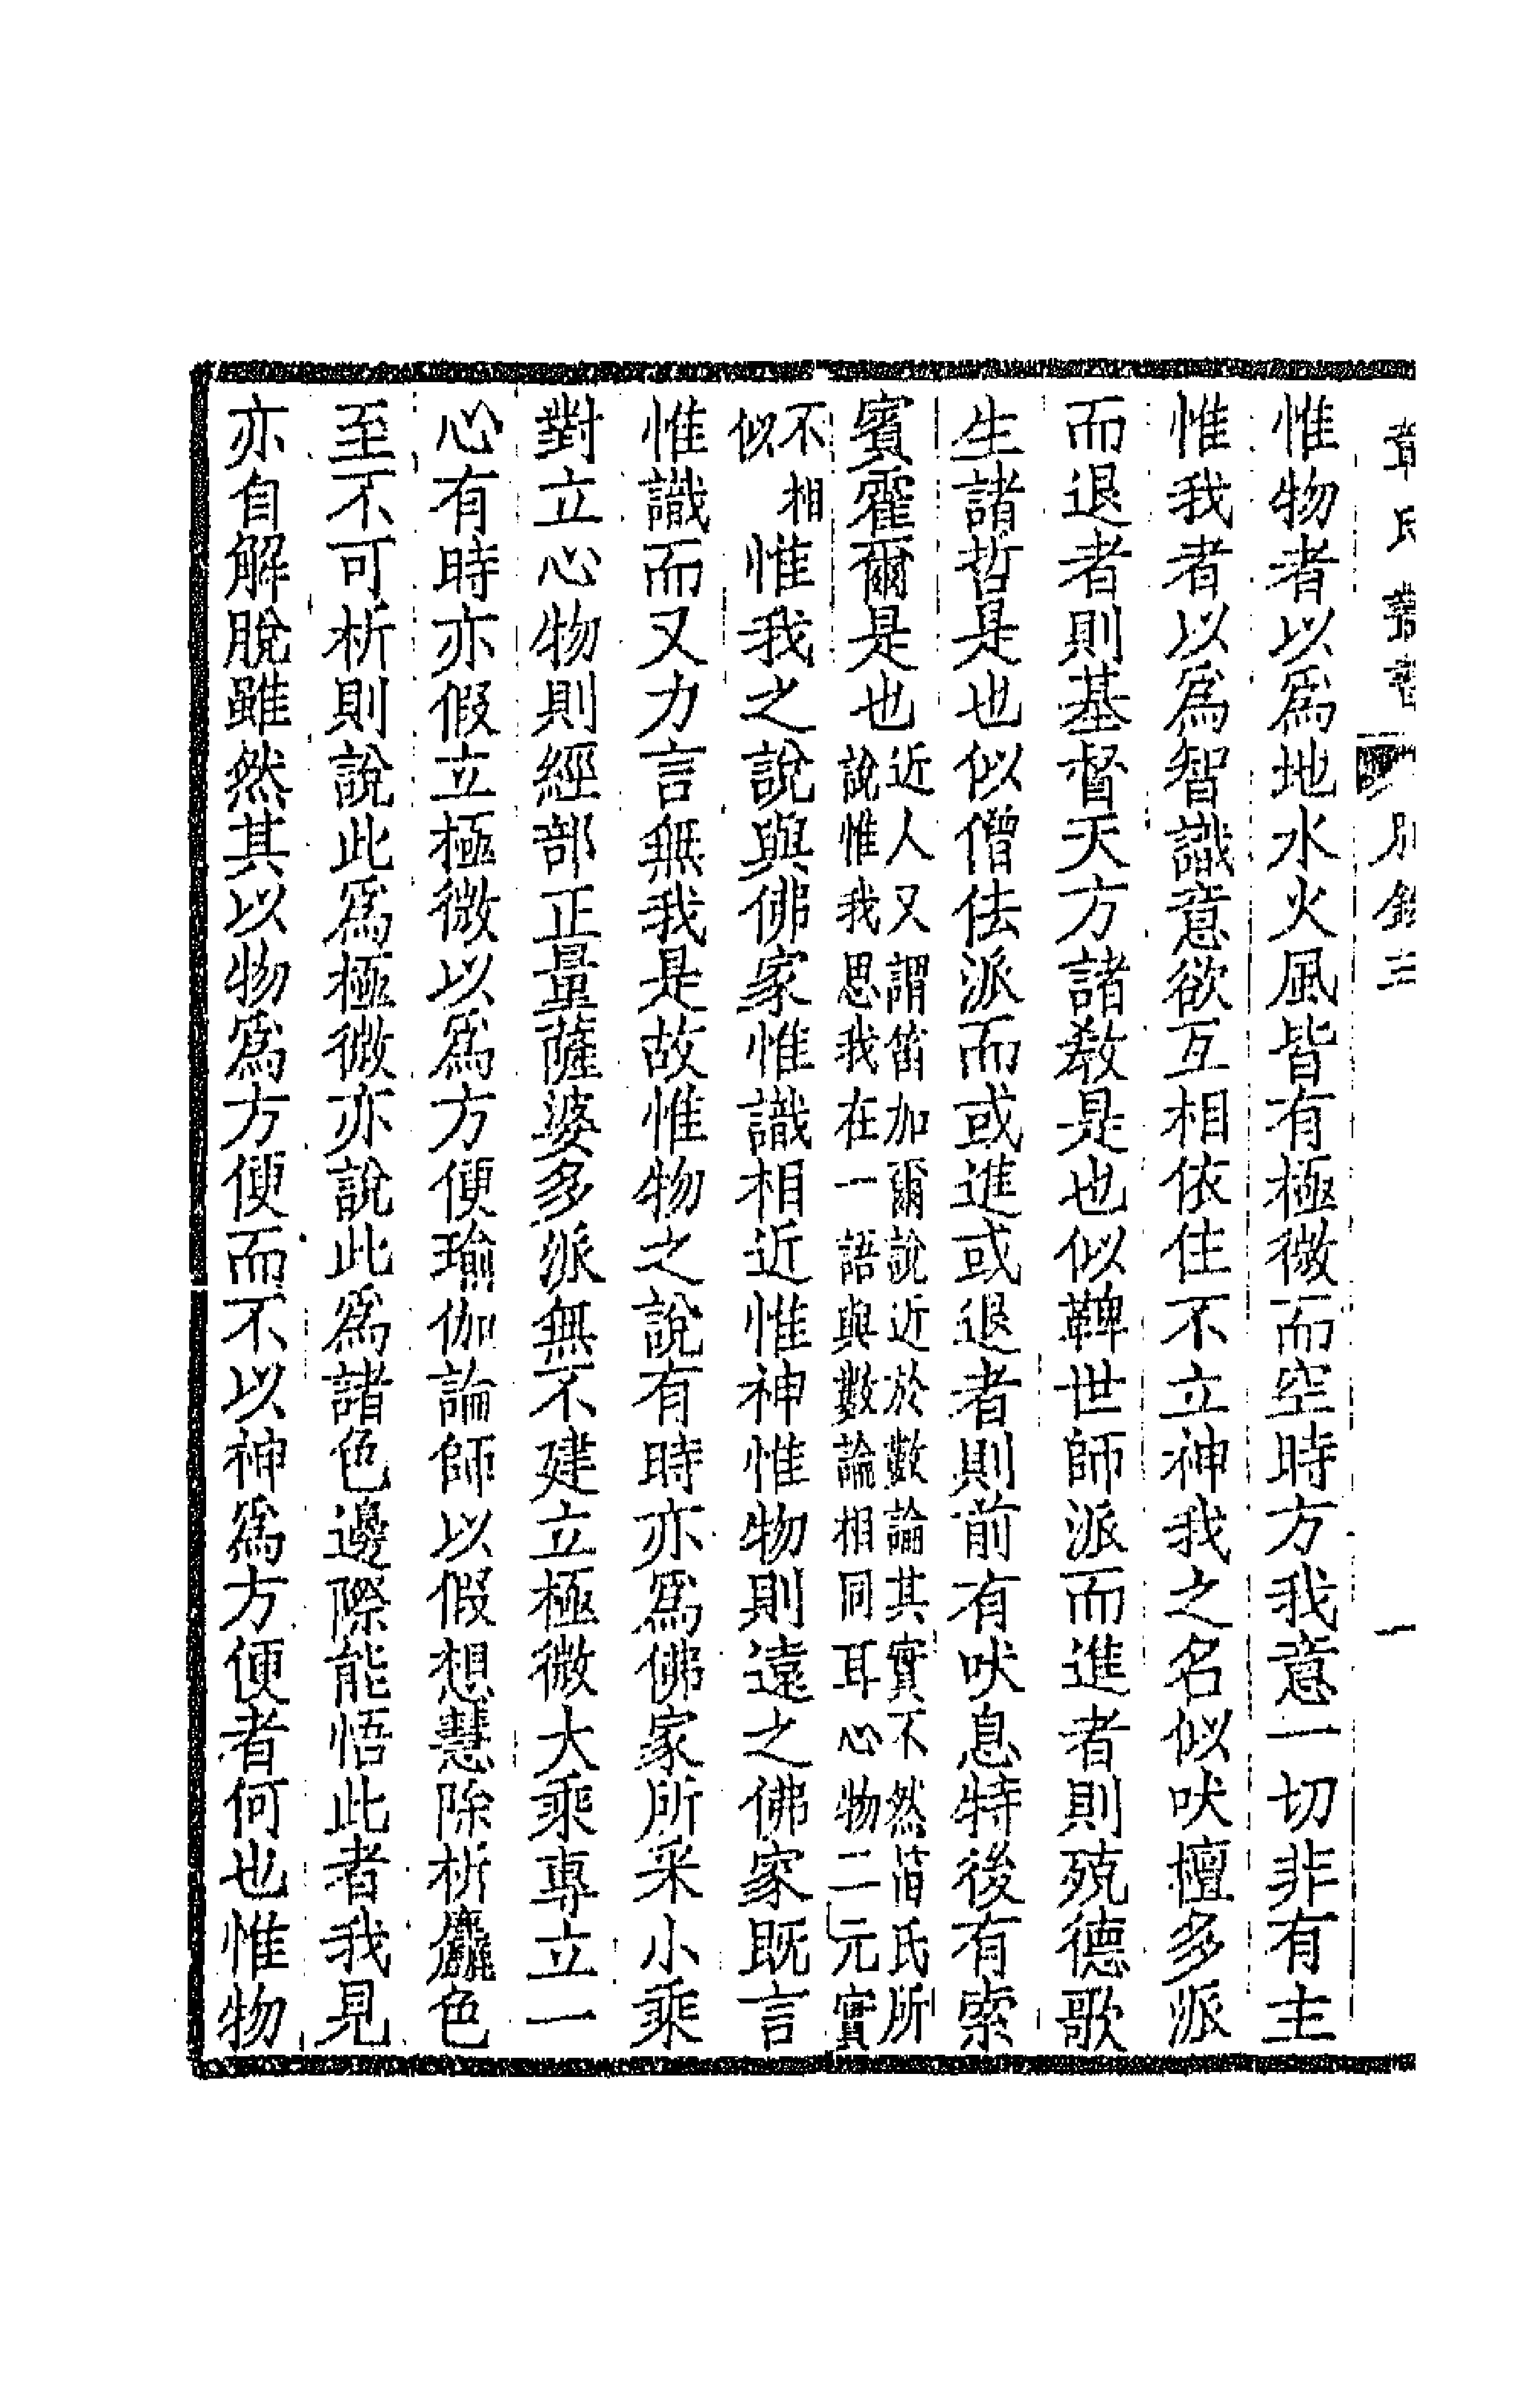 章氏叢書 別錄三 一
惟物者以爲地水火風皆有極微而空時方我意一切非有主
惟我者以爲智識意欲互相依住不立神我之名似吠檀多派
而退者則基督天方諸敎是也似鞞世師派而進者則殑德歌
生諸哲是也似僧佉派而或進或退者則前有吠息特後有索
賓霍爾是也近人又謂笛加爾說近於數論其實不然笛氏所
說惟我思我在一語與數論相同耳心物二元實
不相
似
惟我之說與佛家惟識相近惟神惟物則遠之佛家旣言
惟識而又力言無我是故惟物之說有時亦爲佛家所采小乘
對立心物則經部正量薩婆多派無不建立極微大乘專立一
心有時亦假立極微以爲方便瑜伽論師以假想慧除析麤色
至不可析則說此爲極微亦說此爲諸色邊際能悟此者我見
亦自解脫雖然其以物爲方便而不以神爲方便者何也惟物